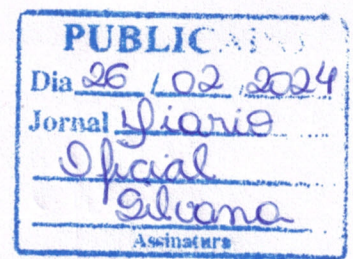 PUBLICADO
Dia 26 / 02 / 2024
Jornal Diario
Oficial
Silvana
Assinatura